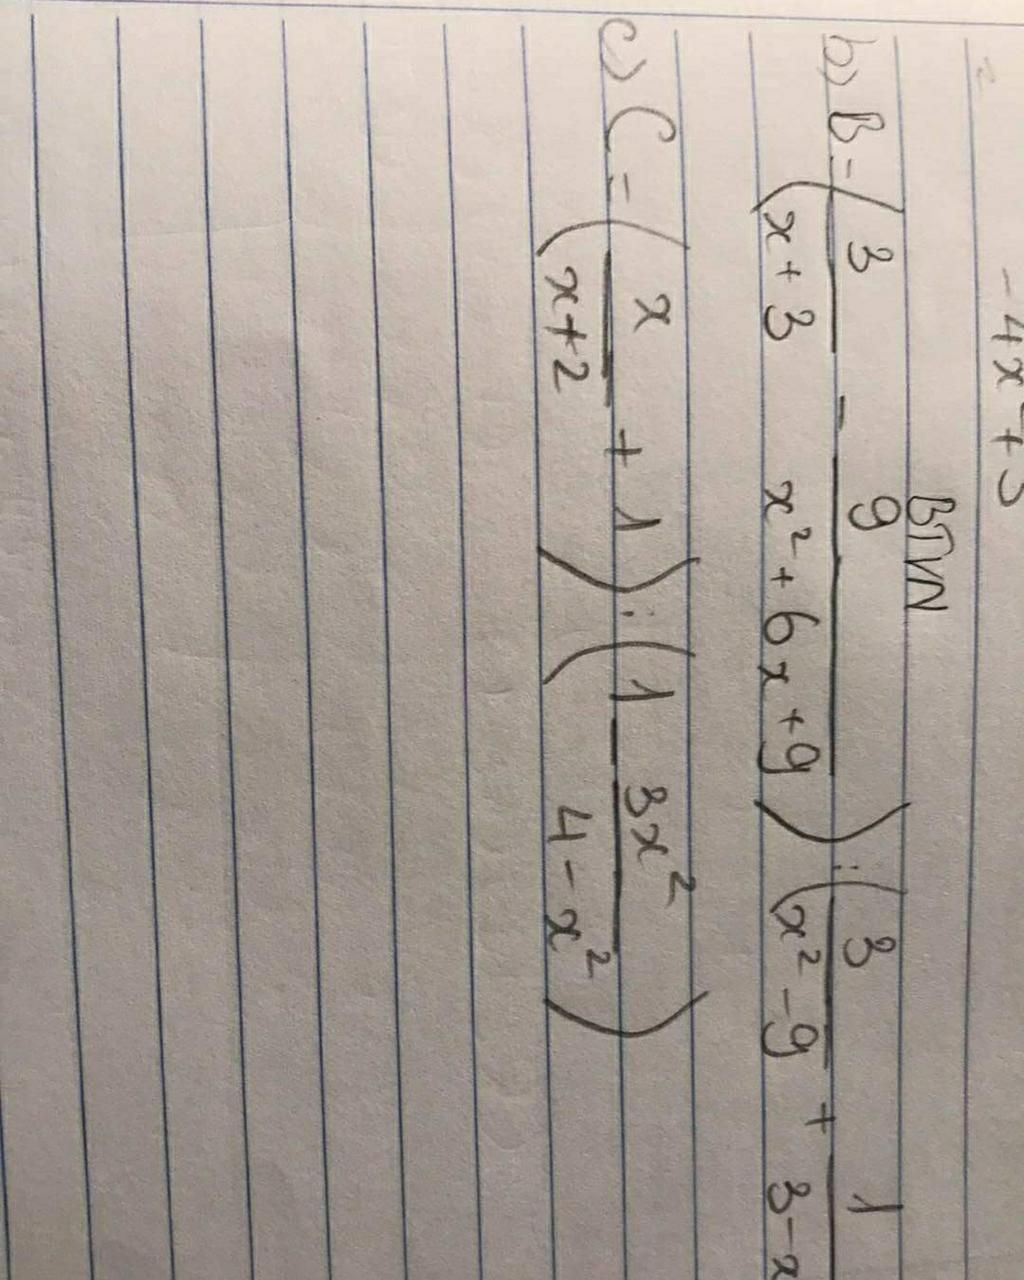 - 4x² + 3
BTVN
b) B = (3/(x + 3) - 9/(x² + 6x + 9)) : (3/(x² - 9) + 1/(3 - x
c) C = (x/(x + 2) + 1) : (1 - 3x²/(4 - x²))